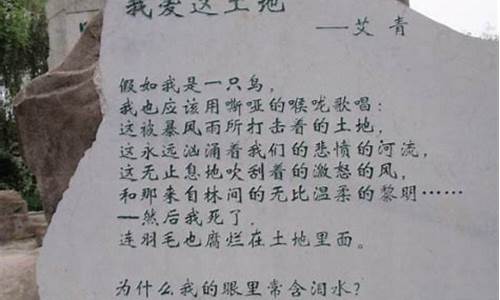 我爱这土地
——艾青
假如我是一只鸟，
我也应该用嘶哑的喉咙歌唱：
这被暴风雨所打击着的土地，
这永远汹涌着我们的悲愤的河流，
这无止息地吹刮着的激怒的风，
和那来自林间的无比温柔的黎明……
——然后我死了，
连羽毛也腐烂在土地里面。
为什么我的眼里常含泪水？